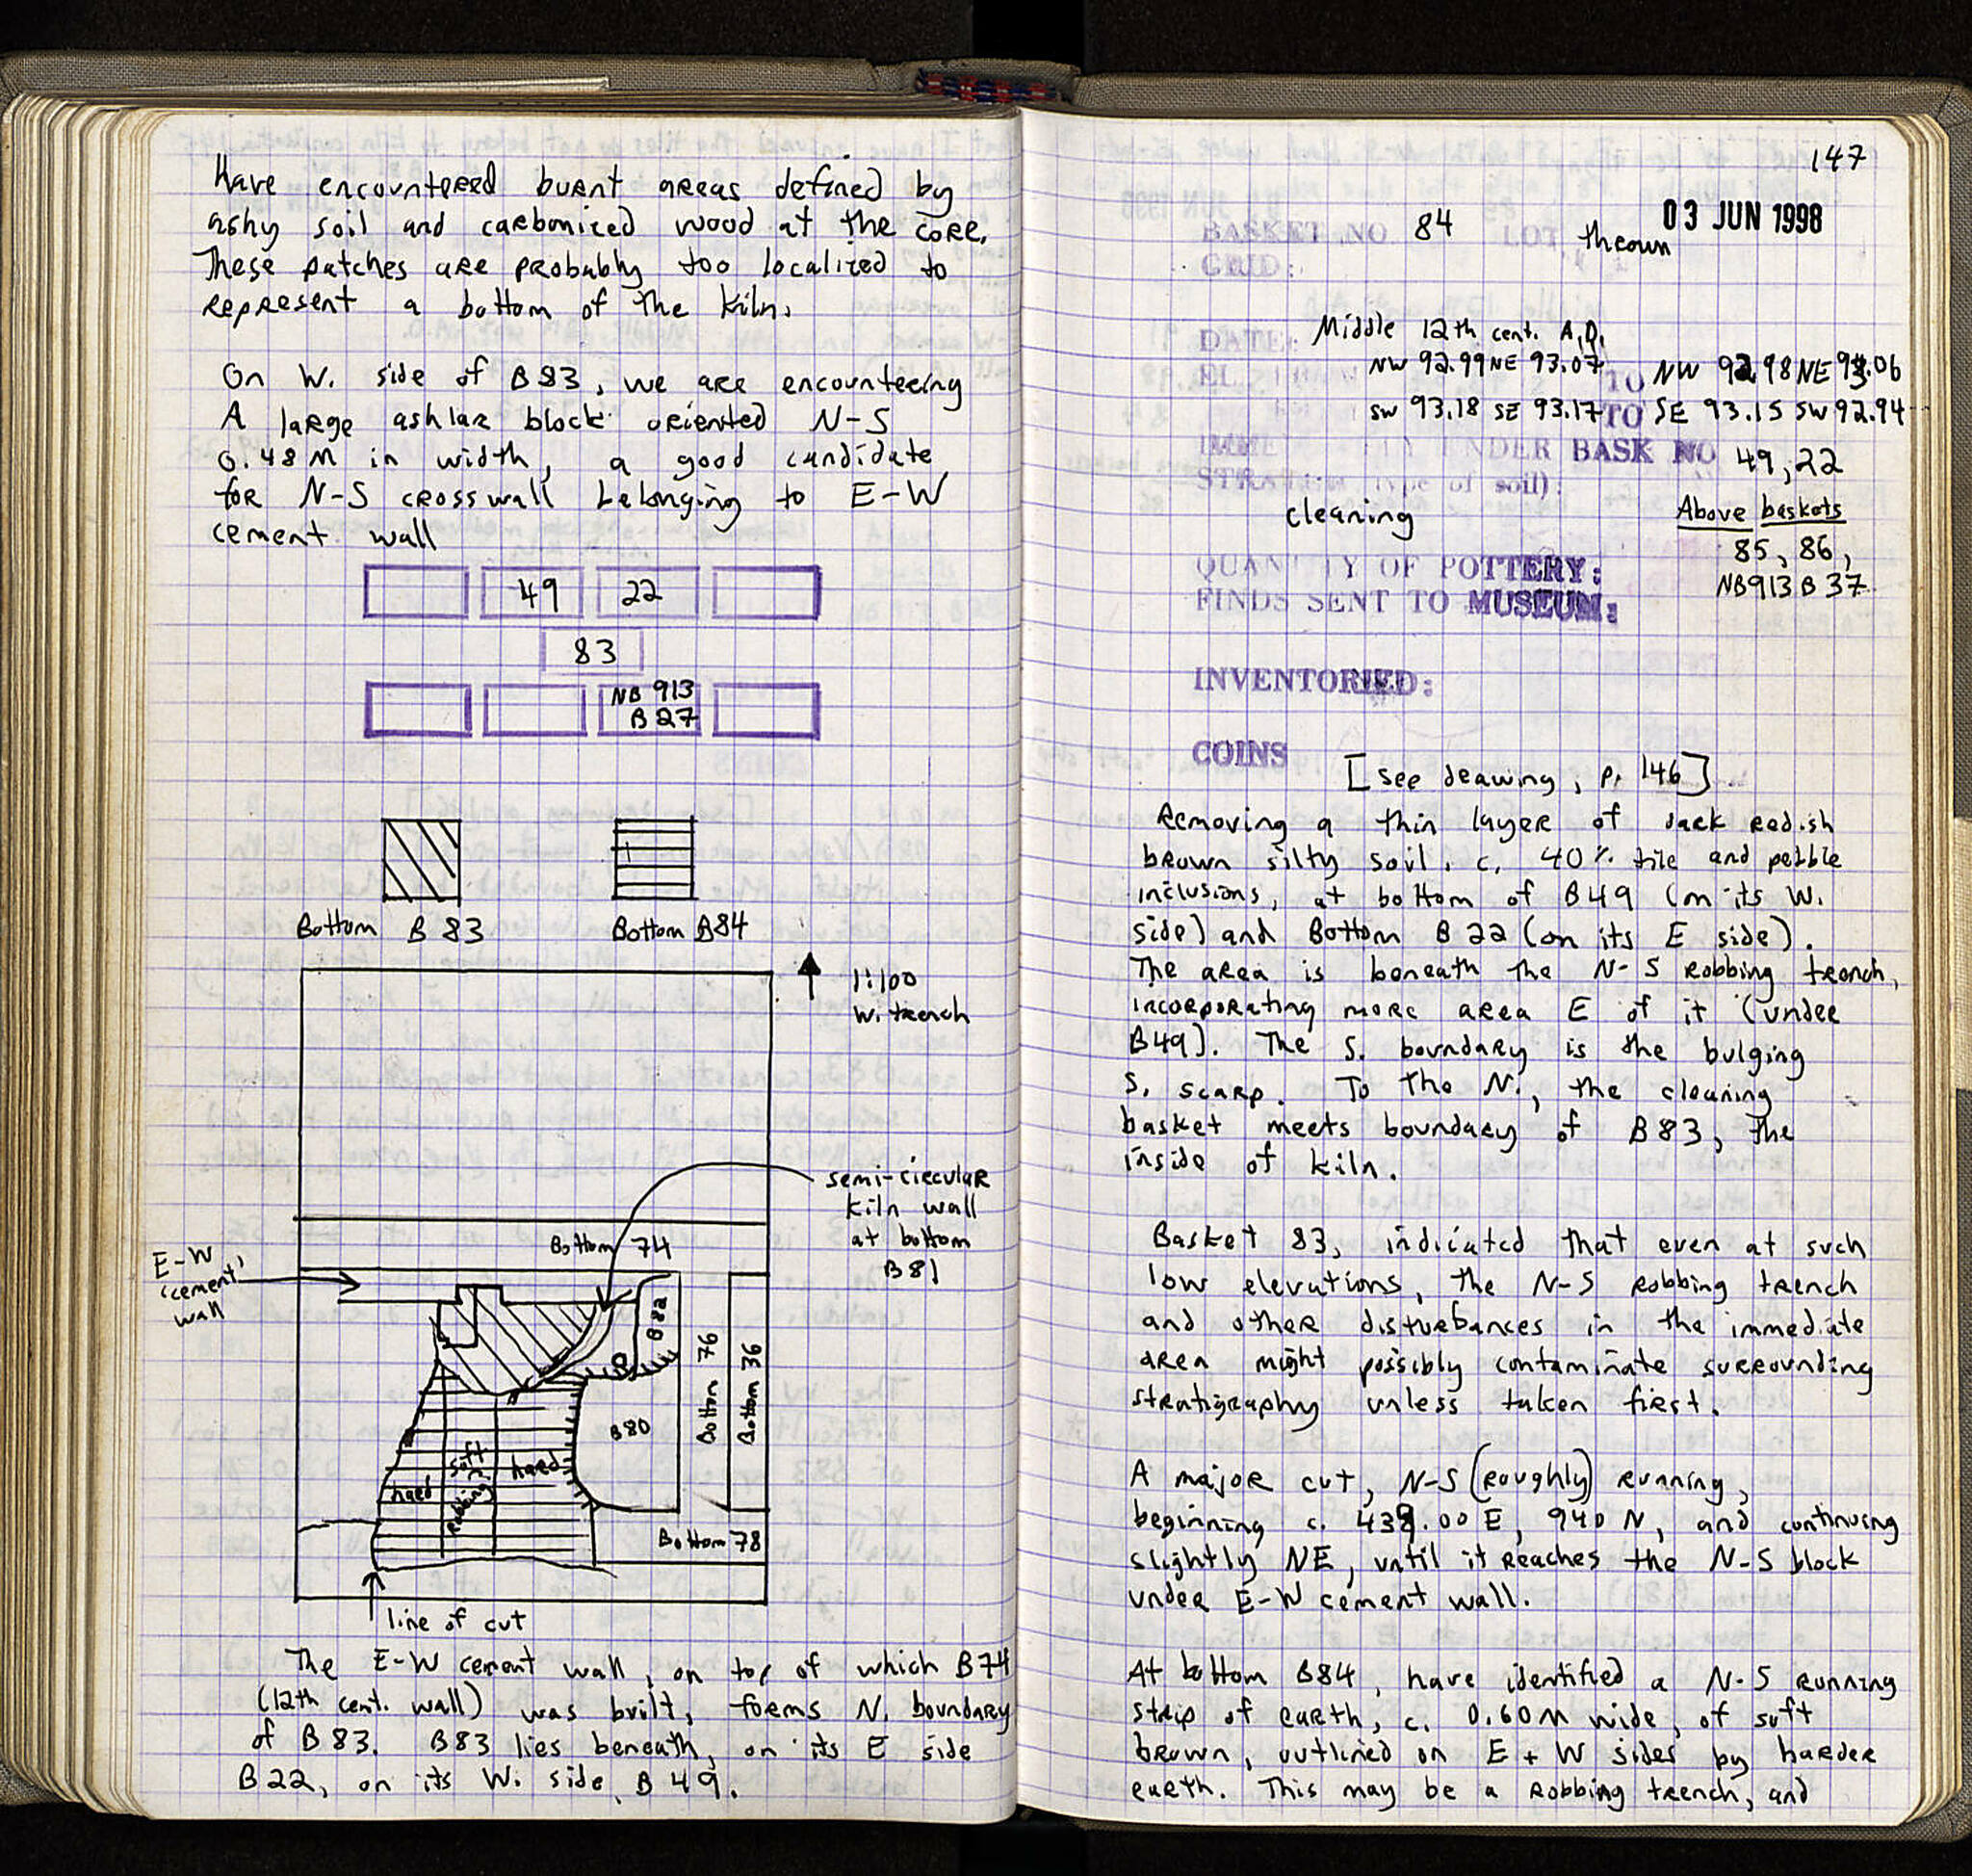 Have encountered burnt areas defined by
ashy soil and carbonized wood at the core.
These patches are probably too localized to
represent a bottom of the kiln.
On W. side of B83, we are encountering
A large ashlar block oriented N-S
0.48 M in width, a good candidate
for N-S crosswall belonging to E-W
cement wall
49 22
83
NB 913
B 27
Bottom B 83
Bottom B84
1:100
W. trench
semi-circular
kiln wall
at bottom
B 81
Bottom 74
E-W
'cement'
wall
B 82
Bottom 76
Bottom 36
B80
hard
soft
Robbing?
hard
Bottom 78
line of cut
The E-W cement wall, on top of which B74
(12th cent. wall) was built, forms N. boundary
of B 83. B83 lies beneath, on its E side
B 22, on its W. side, B 49.
147
03 JUN 1998
BASKET NO 84 LOT thrown
GRID:
DATE: Middle 12th cent. A.D.
NW 92.99 NE 93.07 TO NW 92.98 NE 93.06
SW 93.18 SE 93.17 TO SE 93.15 SW 92.94
UNDER BASK NO 49, 22
STRATUM (type of soil):
cleaning
Above baskets
85, 86,
NB913 B 37
QUANTITY OF POTTERY:
FINDS SENT TO MUSEUM:
INVENTORIED:
COINS
[see drawing, p. 146]
Removing a thin layer of dark redish
brown silty soil, c. 40% tile and pebble
inclusions, at bottom of B49 (on its W.
side) and Bottom B 22 (on its E side).
The area is beneath the N-S Robbing trench,
incorporating more area E of it (under
B49). The S. boundary is the bulging
S. scarp. To the N., the cleaning
basket meets boundary of B83, the
inside of kiln.
Basket 83, indicated that even at such
low elevations, the N-S Robbing trench
and other disturbances in the immediate
area might possibly contaminate surrounding
stratigraphy unless taken first.
A major cut, N-S (roughly) running,
beginning c. 438.00 E, 940 N, and continuing
slightly NE, until it reaches the N-S block
under E-W cement wall.
At bottom B84, have identified a N-S Running
strip of earth, c. 0.60M wide, of soft
brown, outlined on E + W sides by harder
earth. This may be a Robbing trench, and